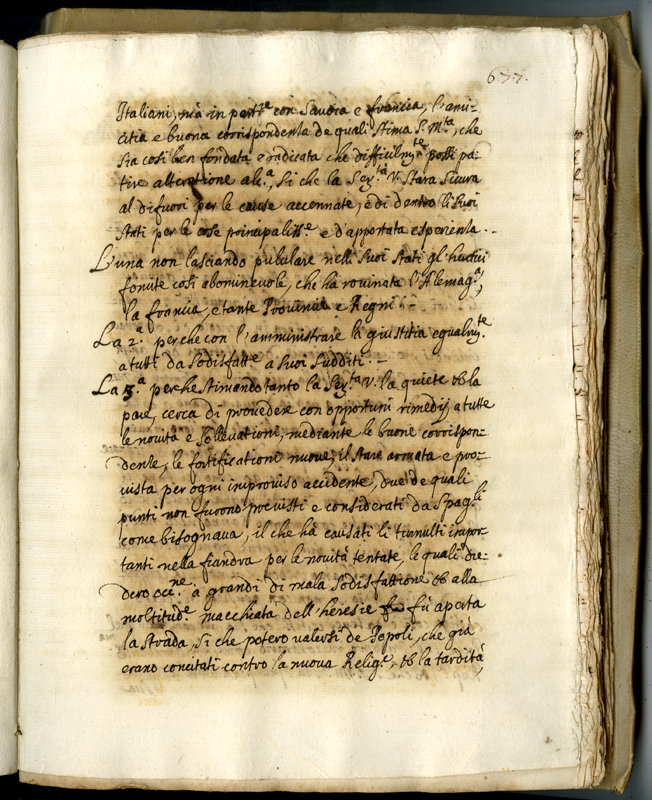 677.
Italiani, mà in part.re con Savoia e francia, l'ami-
citia e buona corrispondenza de quali stima S. M.ta, che
sia così ben fondata e radicata che difficilm.te possi pa-
tire alteratione alc.a, si che la Ser.tà V. starà sicura
al di fuori per le cause accennate, e di dentro li suoi
stati per le cose principaliss.e e d'apportata esperienza.-
L'una non lasciando pubulare nelli suoi stati gl'heretici
fonte così abominevole, che hà rovinata l'Alemag.a,
la francia, e tante Provincie e Regni.-
La 2.a perche con l'amministrare la giustitia egualm.te
a tutti dà sodisfatt.e a suoi sudditi.-
La 3.a perche stimando tanto la Ser.tà V. la quiete et la
pace, cerca di provedere con opportuni rimedij a tutte
le novità e sollevationi, mediante le buone corrispon-
denze, le fortificationi nuove, il stare armata e prov-
vista per ogni improviso accidente, due de quali
punti non furono previsti e considerati da Spag.li
come bisognava, il che hà causati li tumulti impor-
tanti nella fiandra per le novità tentate, le quali die-
dero occ.ne à grandi di mala sodisfattione et alla
moltitud.e macchiata dell'heresie fù aperta
la strada, si che potero valersi de Popoli, che già
erano concitati contro la nuova Relig.e, et la tardità,